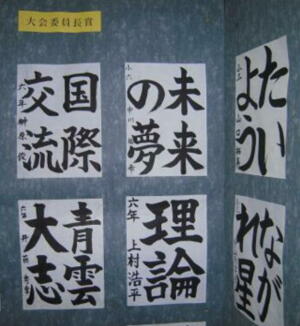 大会委員長賞
国際
交流
六年 榊原
未来
の夢
小六 中川
たい
よう
山田
青雲
大志
六年
理論
六年 上村浩平
なが
れ星